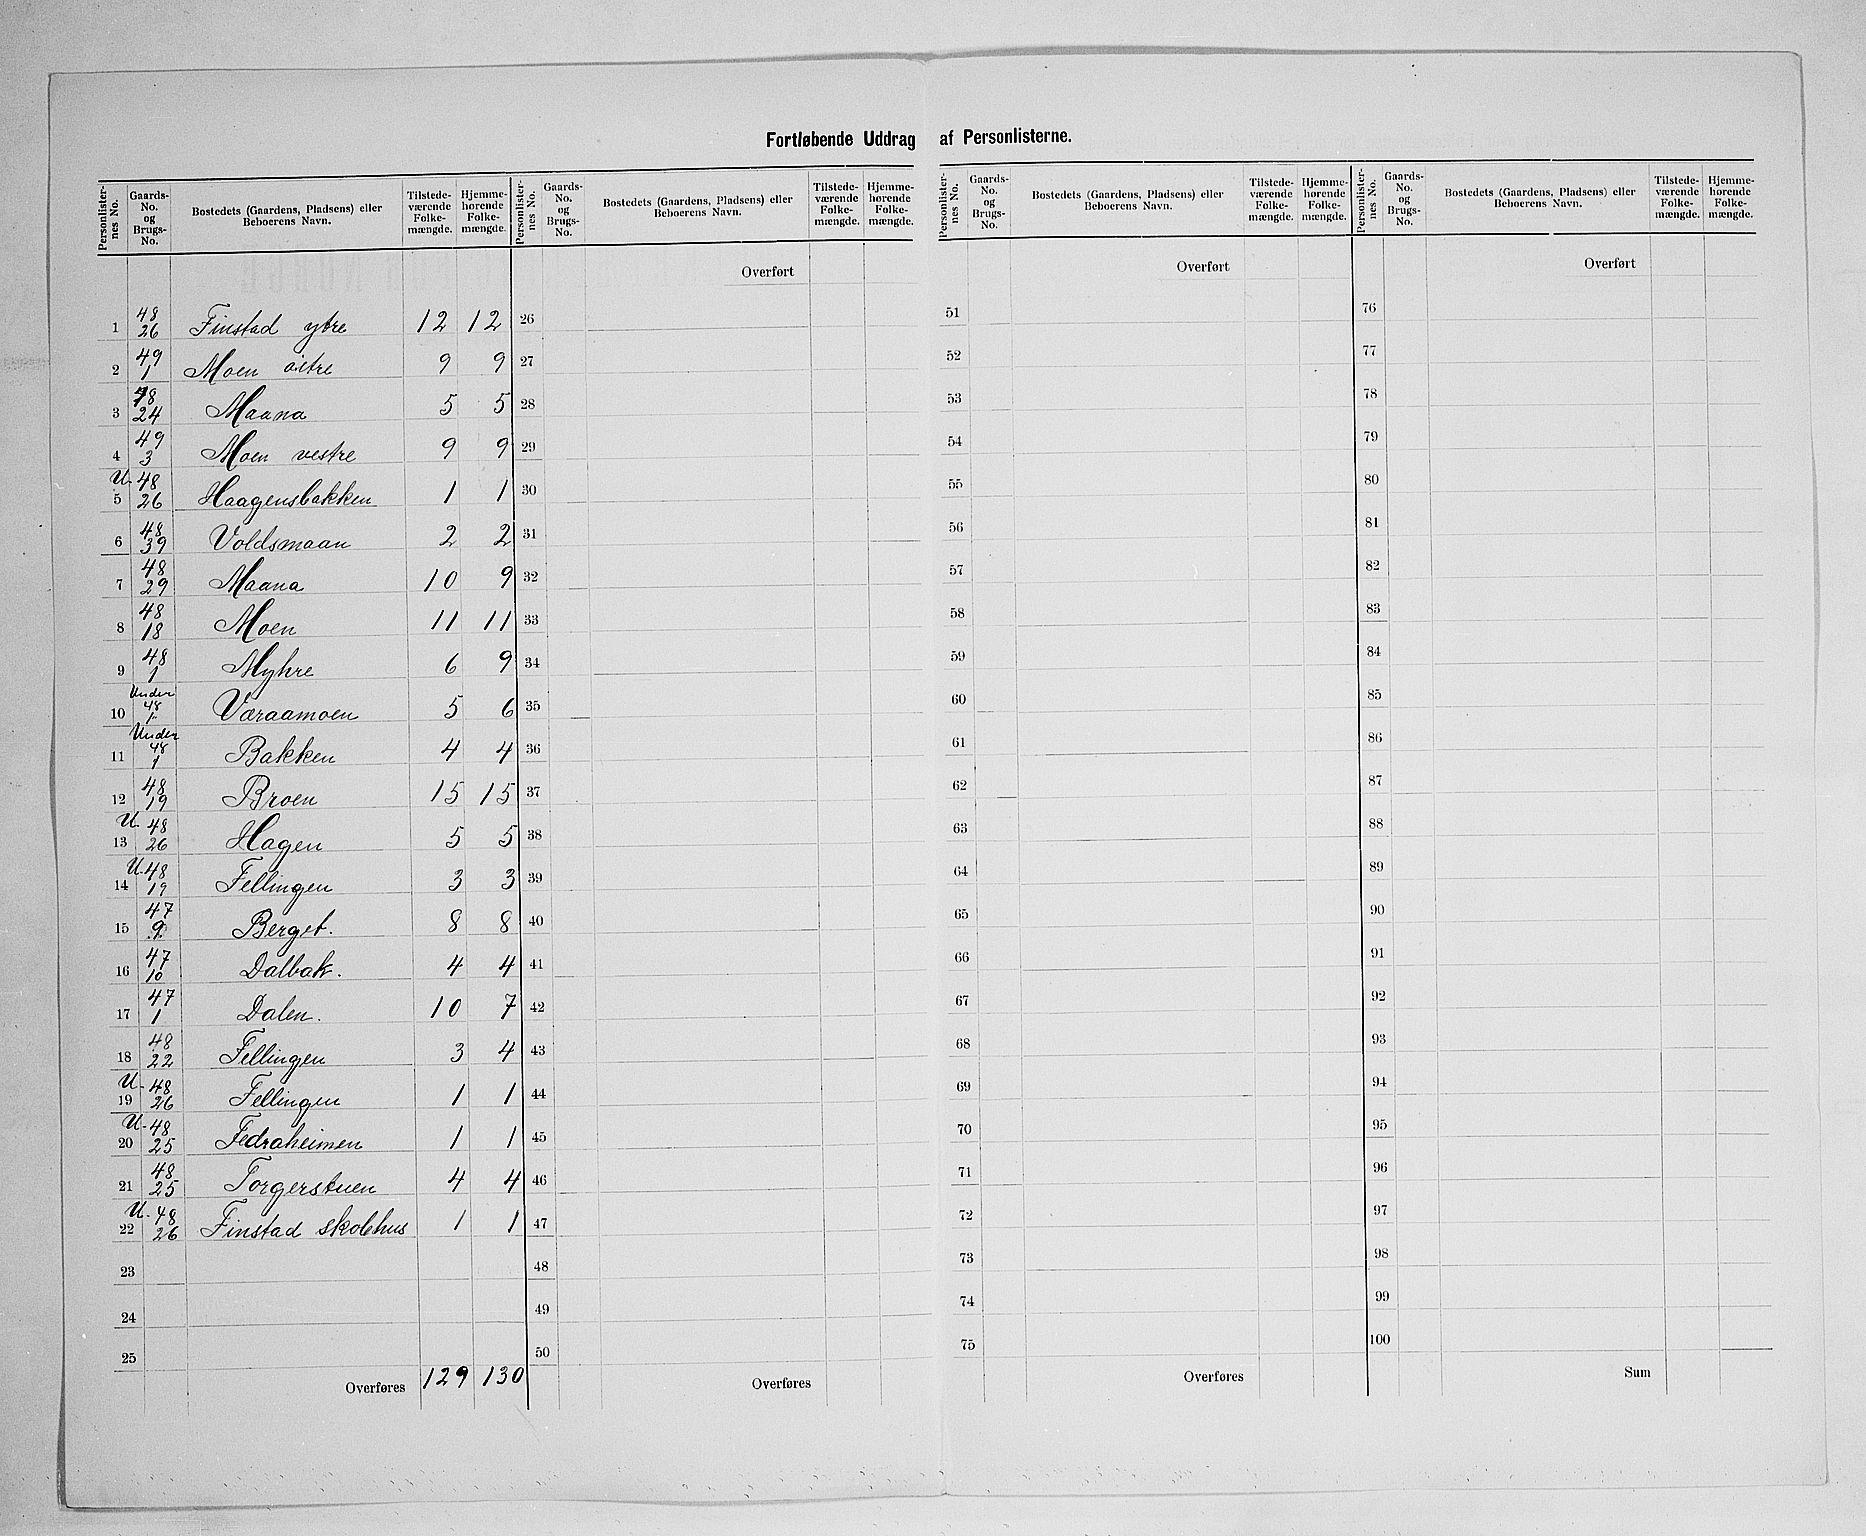 Fortløbende Uddrag af Personlisterne.
Personlisternes No. | Gaards-No. og Brugs-No. | Bostedets (Gaardens, Pladsens) eller Beboerens Navn. | Tilstedeværende Folkemængde. | Hjemmehørende Folkemængde. | Personlisternes No. | Gaards-No. og Brugs-No. | Bostedets (Gaardens, Pladsens) eller Beboerens Navn. | Tilstedeværende Folkemængde. | Hjemmehørende Folkemængde. | Personlisternes No. | Gaards-No. og Brugs-No. | Bostedets (Gaardens, Pladsens) eller Beboerens Navn. | Tilstedeværende Folkemængde. | Hjemmehørende Folkemængde. | Personlisternes No. | Gaards-No. og Brugs-No. | Bostedets (Gaardens, Pladsens) eller Beboerens Navn. | Tilstedeværende Folkemængde. | Hjemmehørende Folkemængde.
Overført Overført Overført
1 48/26 Finstad ytre 12 12 26 51 76
2 49/1 Moen östre 9 9 27 52 77
3 48/24 Maana 5 5 28 53 78
4 49/3 Moen vestre 9 9 29 54 79
5 U. 48/26 Haagensbakken 1 1 30 55 80
6 48/39 Voldsmaan 2 2 31 56 81
7 48/29 Maana 10 9 32 57 82
8 48/18 Moen 11 11 33 58 83
9 48/1 Myhre 6 9 34 59 84
10 Under 48/1 Væraamoen 5 6 35 60 85
11 Under 48/1 Bakken 4 4 36 61 86
12 48/19 Broen 15 15 37 62 87
13 U. 48/26 Hagen 5 5 38 63 88
14 U. 48/19 Fellingen 3 3 39 64 89
15 47/9 Berget. 8 8 40 65 90
16 47/10 Dalbak. 4 4 41 66 91
17 47/1 Dalen. 10 7 42 67 92
18 48/22 Fellingen 3 4 43 68 93
19 U. 48/26 Fellingen 1 1 44 69 94
20 U. 48/25 Fedraheimen 1 1 45 70 95
21 48/25 Torgerstuen 4 4 46 71 96
22 U. 48/26 Finstad skolehus 1 1 47 72 97
23 48 73 98
24 49 74 99
25 50 75 100
Overføres 129 130 Overføres Overføres Sum